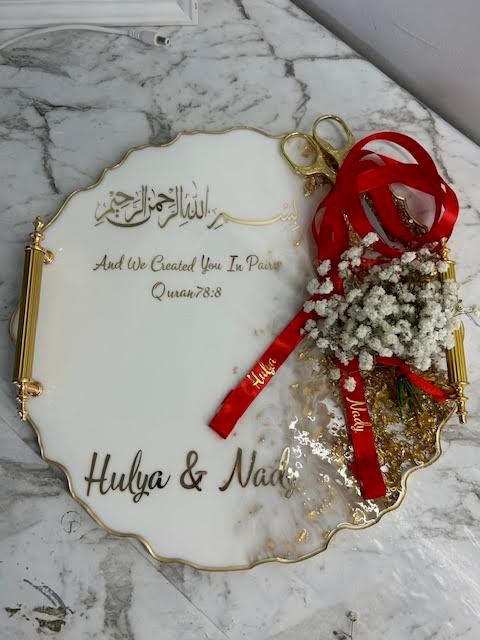 بسم الله الرحمن الرحيم
And We Created You In Pairs
Quran78:8
Hulya
Nady
Hulya & Nady